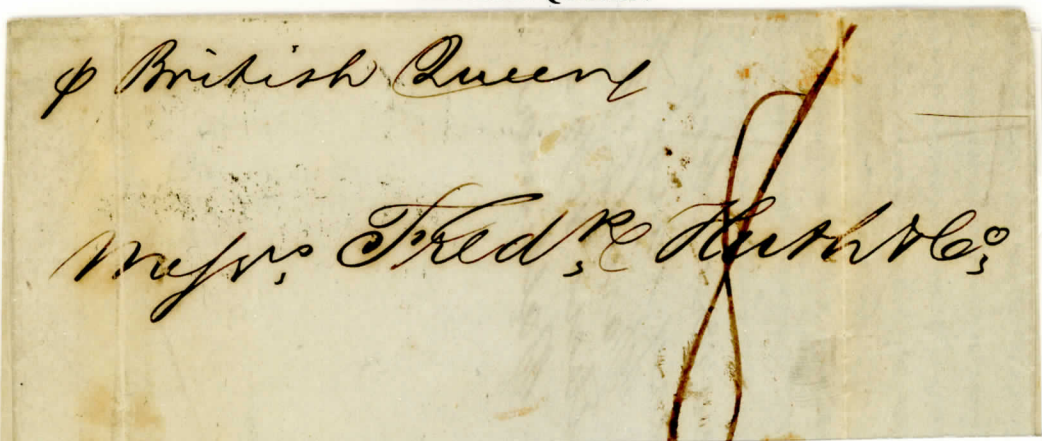 p British Queen
Messrs. Fredk. Huth & Co.